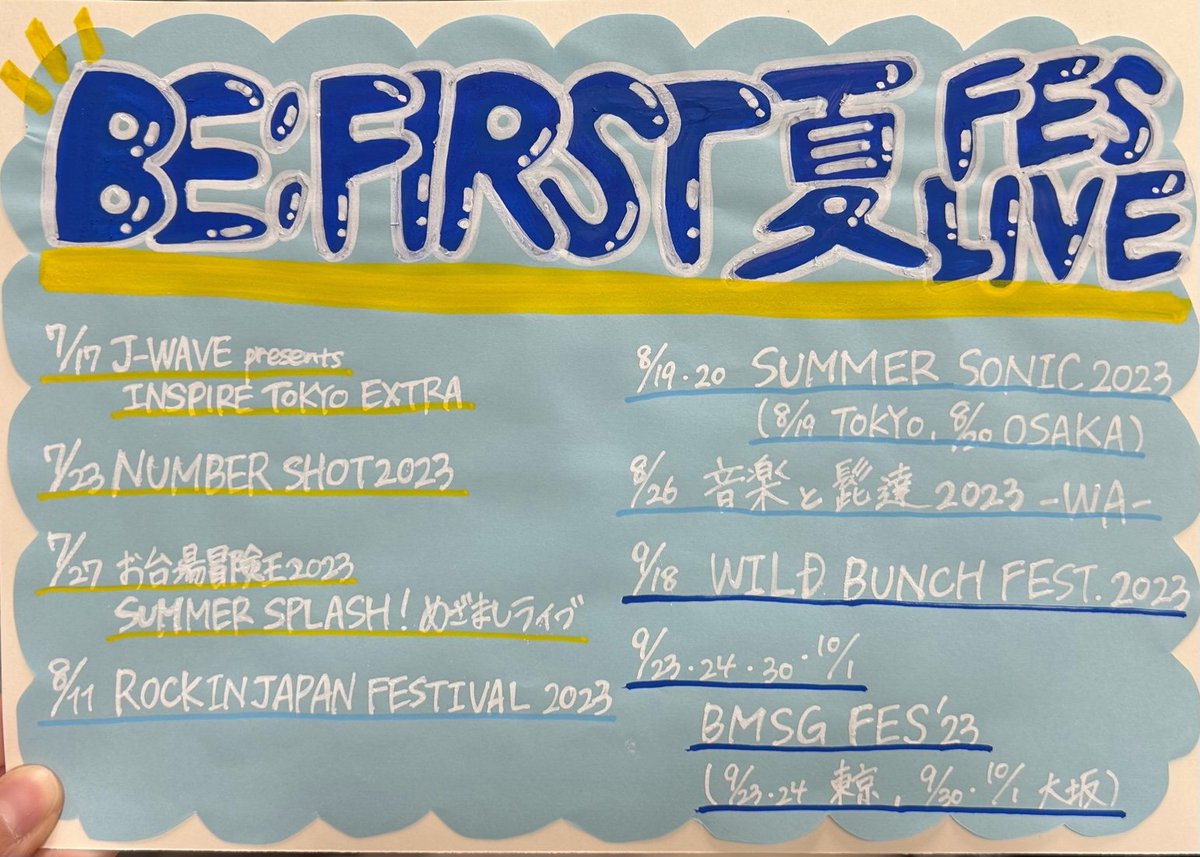 BE:FIRST 夏 FES LIVE
7/17 J-WAVE presents
INSPIRE TOKYO EXTRA
7/23 NUMBER SHOT2023
7/27 お台場冒険王2023
SUMMER SPLASH! めざましライブ
8/11 ROCK IN JAPAN FESTIVAL 2023
8/19・20 SUMMER SONIC 2023
(8/19 TOKYO, 8/20 OSAKA)
8/26 音楽と髭達 2023 -WA-
9/18 WILD BUNCH FEST. 2023
9/23・24・30・10/1
BMSG FES'23
(9/23・24 東京, 9/30・10/1 大坂)